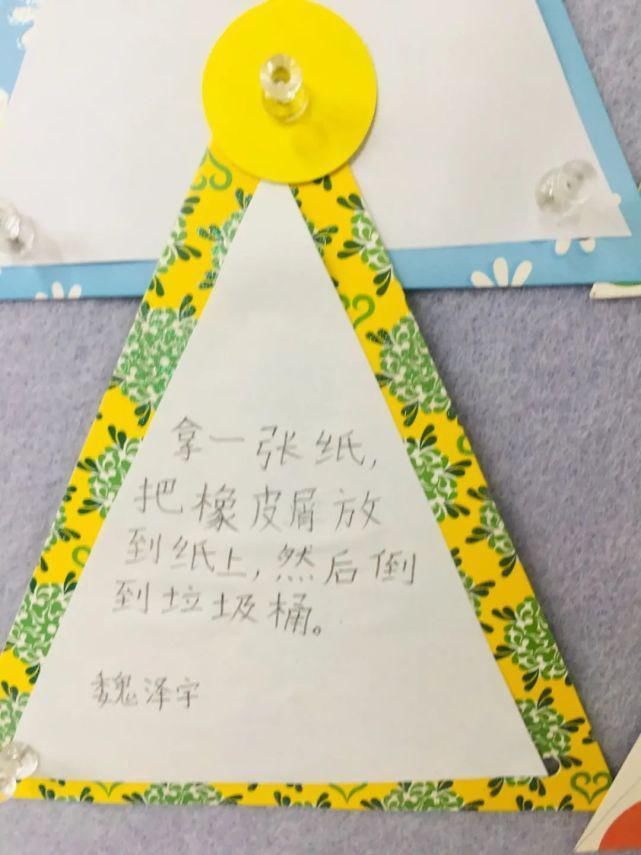 拿一张纸,
把橡皮屑放
到纸上,然后倒
到垃圾桶。
魏泽宇